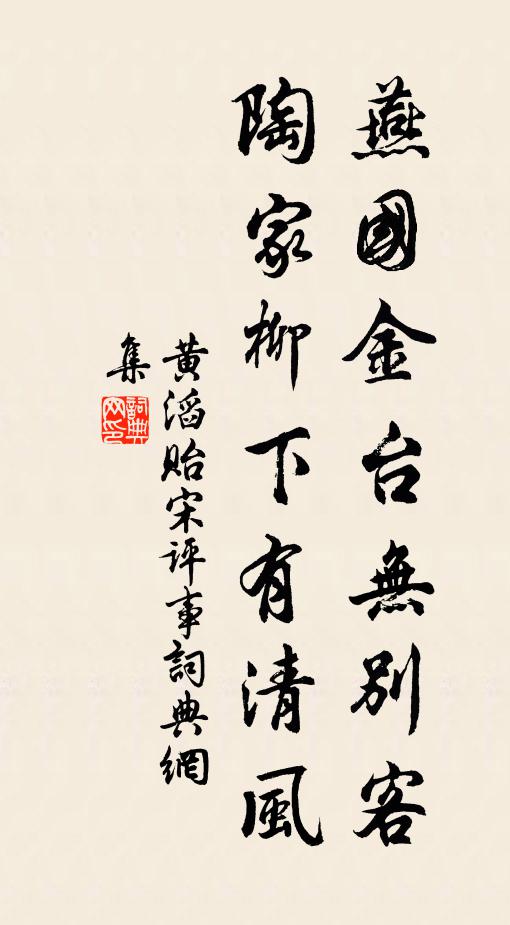 燕國金台無別客
陶家柳下有清風
黃滔貽宋評事詞典網
集
詞典
网印